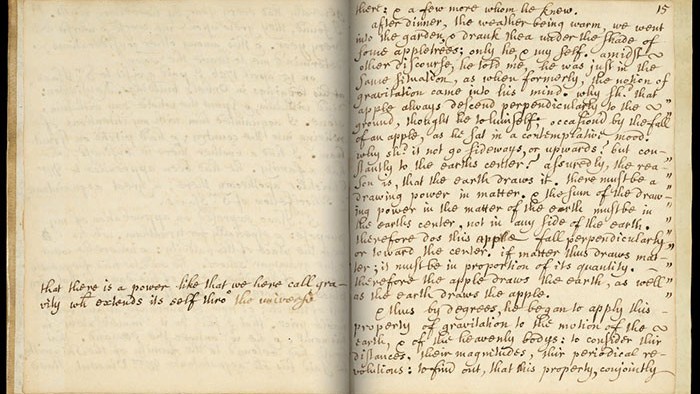 that there is a power like that we here call gra-
vity wh extends its self thro' the universe
15
there: & a few more whom he knew.
after dinner, the weather being warm, we went
into the garden, & drank thea under the shade of
some appletrees; only he, & my self. amidst
other discourse, he told me, he was just in the
same situation, as when formerly, the notion of
gravitation came into his mind. why sh.d that
apple always descend perpendicularly to the
ground, thought he to himself; occasion'd by the fall
of an apple, as he sat in a contemplative mood.
why sh.d it not go sideways, or upwards? but con-
stantly to the earths center? assuredly, the rea-
son is, that the earth draws it. there must be a
drawing power in matter. & the sum of the draw-
ing power in the matter of the earth must be in
the earths center, not in any side of the earth.
therefore dos this apple fall perpendicularly
or toward the center. if matter thus draws mat-
ter; it must be in proportion of its quantity.
therefore the apple draws the earth, as well
as the earth draws the apple.
& thus by degrees, he began to apply this
property of gravitation to the motion of the
earth, & of the heavenly bodys: to consider thir
distances, their magnitudes, thir periodical re-
volutions: to find out, that this property, conjointly